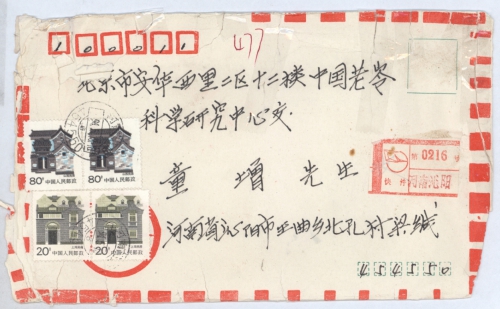 100011
477
北京市安华西里二区十二楼中国老龄
科学研究中心交
童增先生
第 0216 号
河南沁阳
80分 中国人民邮政
80分 中国人民邮政
20分 中国人民邮政
20分 中国人民邮政
河南省沁阳市王曲乡北孔村梁缄
454550